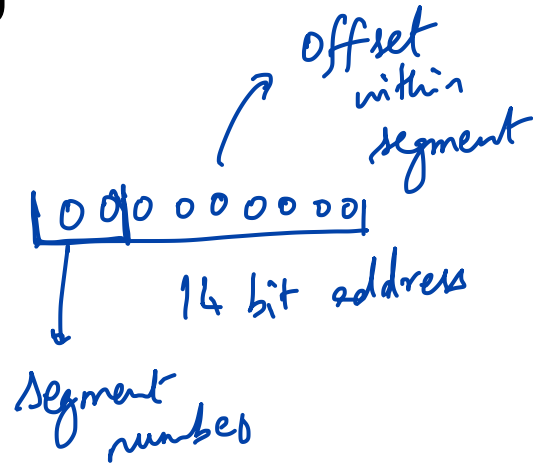 offset
within
segment
00000000​0
14 bit address
segment
number